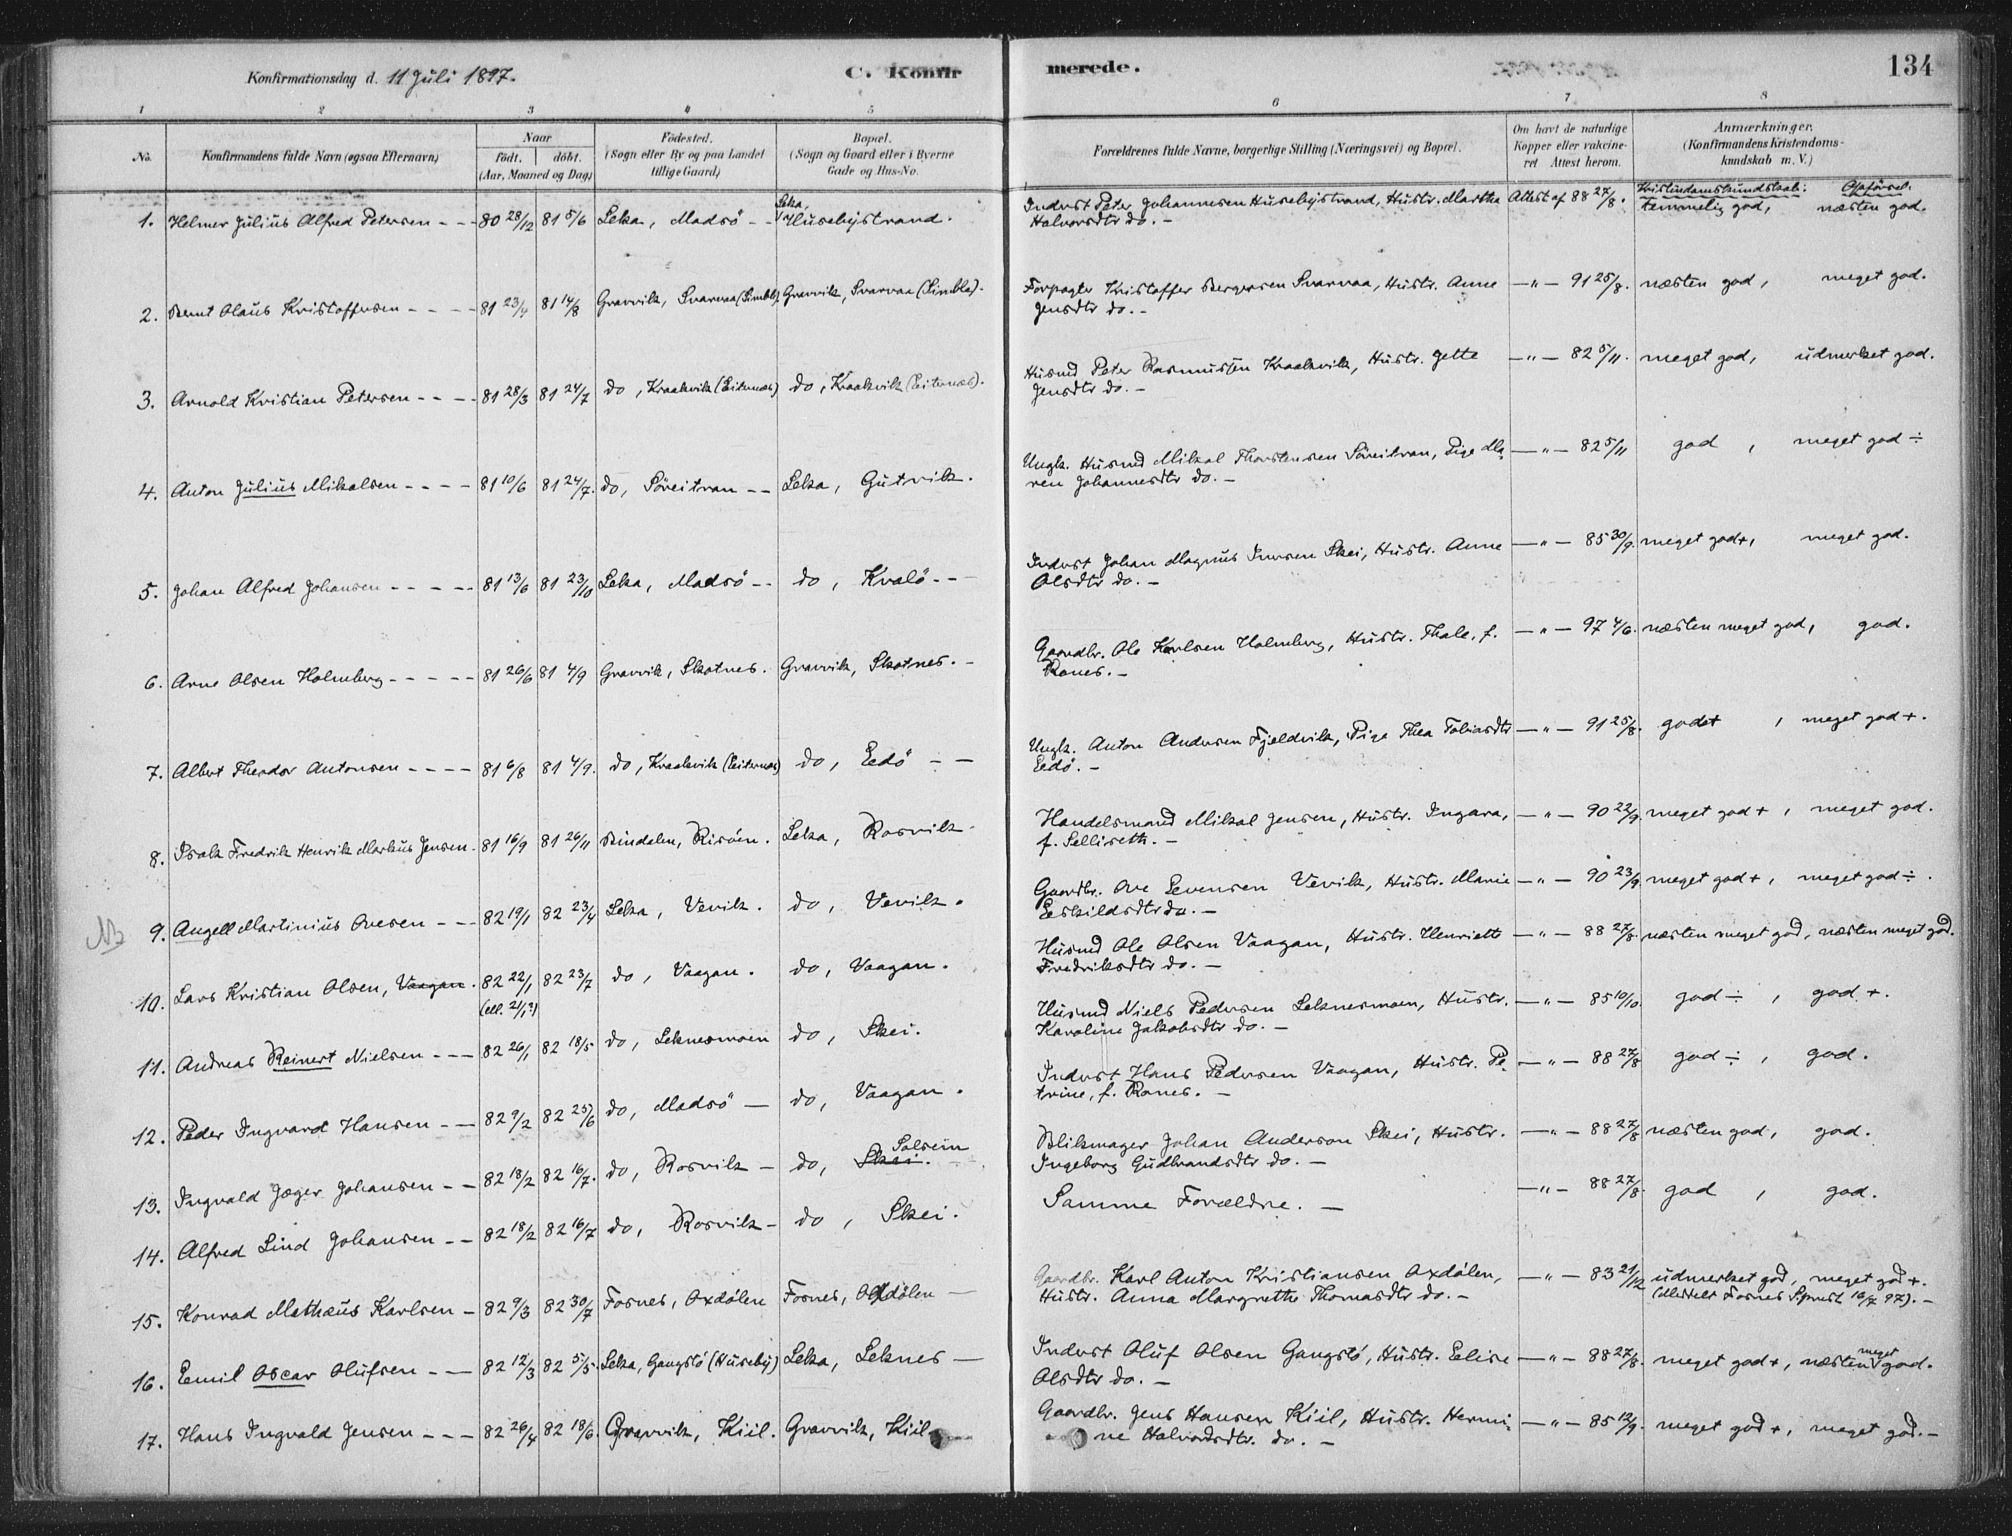 Konfirmationsdag d. 11 Juli 1897.
C. Konfir
merede.
134
1 2 3 4 5 6 7 8
No.
Konfirmandens fulde Navn (ogsaa Efternavn)
Naar
født. | døbt.
(Aar, Maaned og Dag)
Fødested.
(Sogn eller By og paa Landet
tillige Gaard)
Bopæl.
(Sogn og Gaard eller i Byerne
Gade og Hus-No.
Forældrenes fulde Navne, borgerlige Stilling (Næringsvei) og Bopæl.
Om havt de naturlige
Kopper eller vakcine-
ret Attest herom.
Anmærkninger.
(Konfirmandens Kristendoms-
kundskab m. V.)
Kristendomskundskab: Opførsel:
1. Helmer Julius Alfred Petersen - - - 80 28/12 81 5/6 Leka, Madsö - - Leka, Husebystrand. Inderst Peter Johannesen Husebystrand, Hustr. Martha Attest af 88 27/8. temmelig god, næsten god.
Halvorsdtr do. -
2. Bernt Olaus Kristoffersen - - - - 81 23/4 81 14/8 Gravvik, Svarvaa (Simble), Gravvik, Svarvaa (Simble). Forpagter Kristoffer Bergersen Svarvaa, Hustr. Anne - " - 91 25/8. næsten god, meget god.
Jensdtr do. -
3. Arnold Kristian Petersen - - - - 81 28/3 81 24/7 do, Kraakvik (Eiternæs) do, Kraakvik (Eiternæs). Husmd Peter Rasmussen Kraakvik, Hustr. Jette - " - 82 5/11. meget god, udmerket god.
Jensdtr do. -
4. Anton Julius Mikalsen - - - - 81 10/6 81 24/7. do, Söreitran - - Leka, Gutvik. Ungk. Husmd Mikal Thorstensen Söreitran, Pige Ma- - " - 82 5/11 god, meget god ÷
ren Johannesdtr do. -
5. Johan Alfred Johansen - - - - - 81 13/6 81 23/10 Leka, Madsö - - do, Kvalö - - Inderst Johan Magnus Iversen Skei, Hustr. Anne - " - 85 30/9. meget god+, meget god.
Olsdtr do. -
6. Arne Olsen Holmberg - - - - - 81 26/6 81 4/9 Gravvik, Skotnes. Gravvik, Skotnes. - Gaardbr. Ole Karlsen Holmberg, Hustr. Thale, f. - " - 97 4/6. næsten meget god, god.
Rones. -
7. Albert Theodor Antonsen - - - - 81 6/8 81 4/9. do, Kraakvik (Eiternæs) do, Eedö - - Ungk. Anton Andersen Fjeldvik, Pige Thea Tobiasdtr - " - 91 25/8. god+, meget god +.
Eedö. -
8. Isak Fredrik Henrik Markus Jensen. 81 16/9 81 26/11 Bindalen, Risöen. Leka, Rosvik. Handelsmand Mikal Jensen, Hustr. Ingara, - " - 90 22/9. meget god +, meget god.
f. Selliseth. -
9. Angell Martinius Ovesen - - - 82 19/1 82 23/4 Leka, Vevik. do, Vevik. Gaardbr. Ove Evensen Vevik, Hustr. Marie - " - 90 23/9 meget god +, meget god ÷.
Eeskildsdtr do. -
10. Lars Kristian Olsen, Vaagan. 82 22/1 82 23/7 do, Vaagan. do, Vaagan. Husmd Ole Olsen Vaagan, Hustr. Henriette - " - 88 27/8. næsten meget god, næsten meget god.
(ell. 21/1?) Fredriksdtr do. -
11. Andreas Reinert Nielsen - - - 82 26/1 82 18/5 do, Leknesmoen do, Skei. Husmd Niels Pedersen Leknesmoen, Hustr. - " - 85 10/10. god ÷, god +.
Karoline Jakobsdtr do. -
12. Peder Ingvard Hansen - - 82 9/2 82 25/6 do, Madsö - do, Vaagan. Inderst Hans Pedersen Vaagan, Hustr. Pe- - " - 88 27/8 god ÷, god.
trine, f. Rones. -
13. Ingvald Jæger Johansen - - 82 18/2 82 16/7. do, Rosvik - do, Skei. Solsem Blikmager Johan Anderson Skei, Hustr. - " - 88 27/8 næsten god, god.
Ingeborg Gudbrandsdtr do. -
14. Alfred Lind Johansen - - 82 18/2 82 16/7 do, Rosvik - do, Skei. Samme Forældre. - - " - 88 27/8. god, god.
15. Konrad Mathæus Karlsen - 82 9/3 82 30/7 Fosnes, Oxdölen Fosnes, Oxdölen - Gaardbr. Karl Anton Kristiansen Oxdölen, - " - 83 21/12 udmerket god, meget god +.
Hustr. Anna Margrethe Thomasdtr do. - (Meddelt Fosnes Sprest 16/7 97). -
16. Emil Oscar Olufsen - - 82 12/3 82 5/5. Leka, Gangstö (Huseby) Leka, Leknes - Inderst Oluf Olsen Gangstö, Hustr. Eelise - " - 88 27/8. meget god +, næsten meget god.
Olsdtr do. -
17. Hans Ingvald Jensen - - - 82 26/4 82 18/6. Gravvik, Kiil. Gravvik, Kiil Gaardbr. Jens Hansen Kiil, Hustr. Hermi- - " - 85 12/9. meget god +, meget god. -
ne Halvordsdtr. do. -